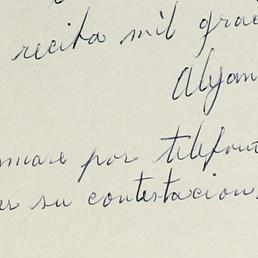 recita mil grac
Alyan
mare por telefon
er su contestacion.